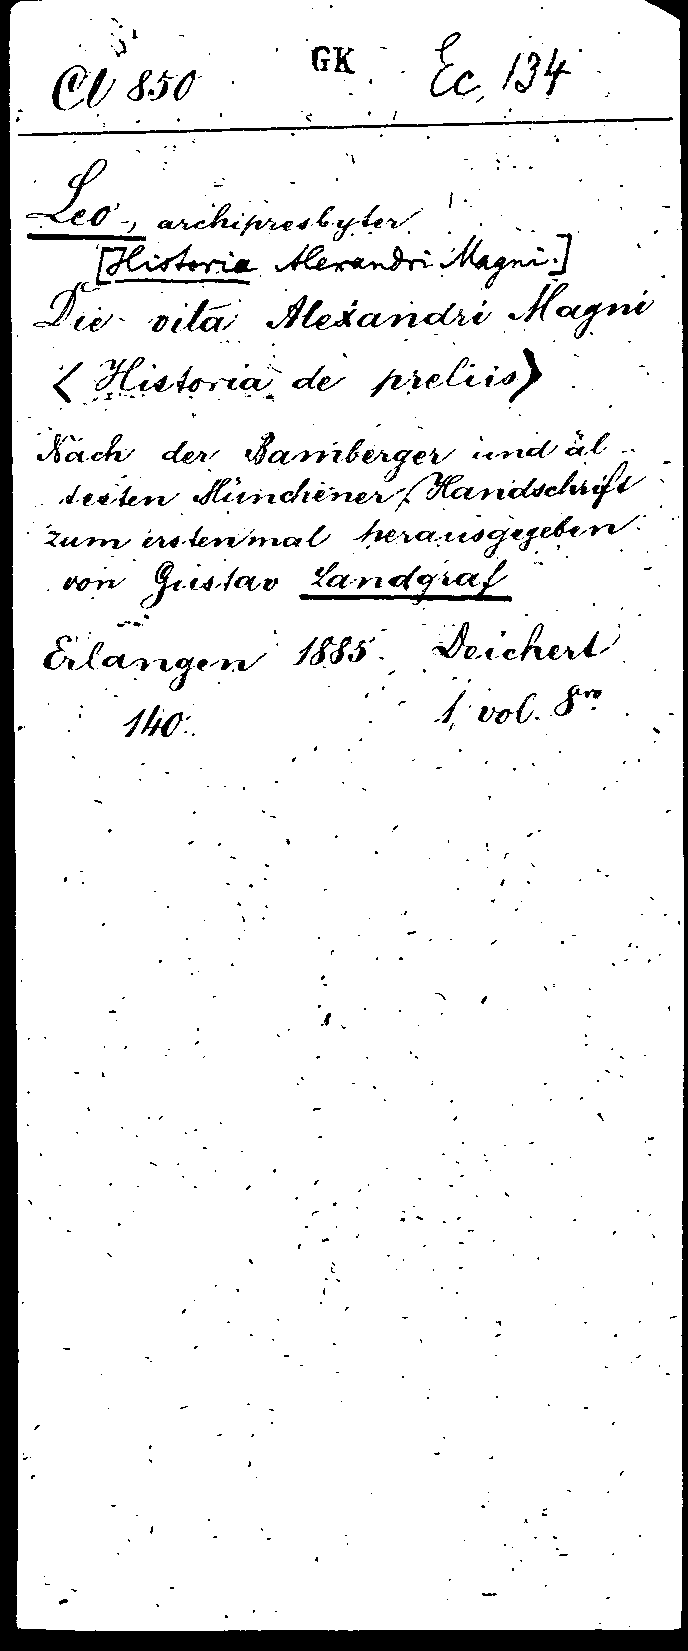 Cl 850 GK Ec, 134
Leo, archipresbyter
[Historia Alexandri Magni.]
Die vita Alexandri Magni
<Historia de preliis>
Nach der Bamberger und äl-
testen Münchener Handschrift
zum erstenmal herausgegeben
von Gustav Landgraf
Erlangen 1885. Deichert
140. 1 vol. 8vo